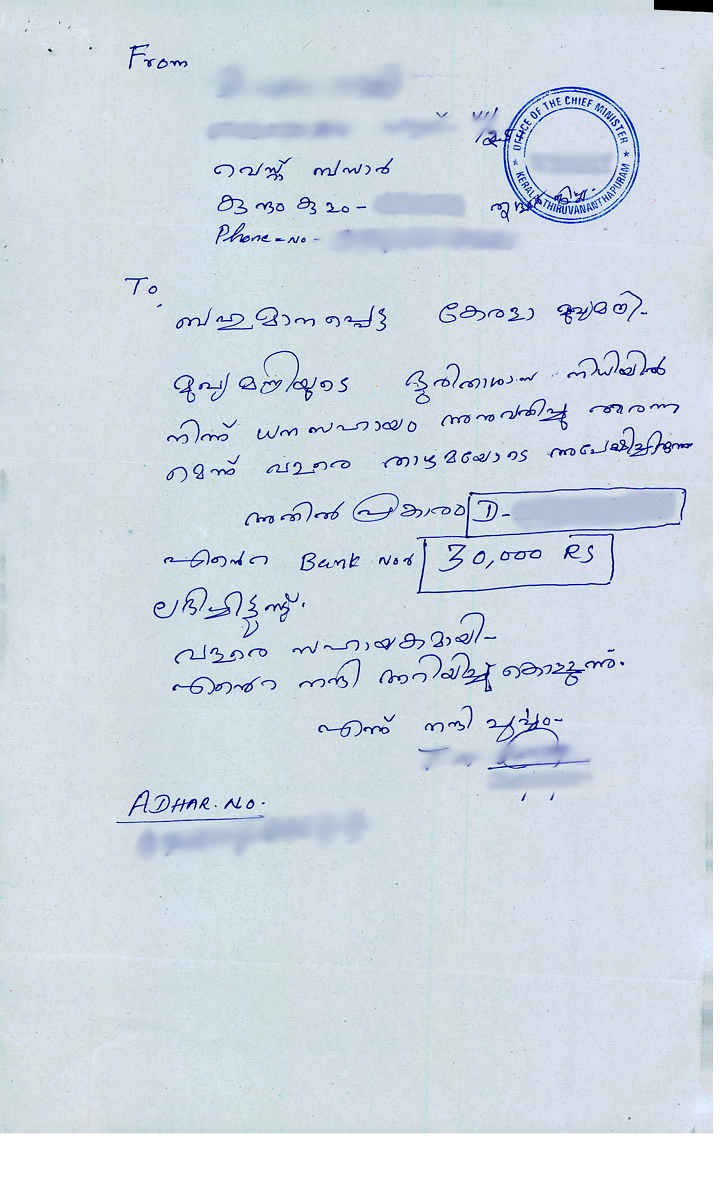 From
OFFICE OF THE CHIEF MINISTER
KERALA THIRUVANANTHAPURAM
വെസ്റ്റ് ബസാർ
കുന്ദംകുളം -
Phone = No -
To,
ബഹുമാനപ്പെട്ട കേരളാ മുഖ്യമന്ത്രി -
മുഖ്യമന്ത്രിയുടെ ദുരിതാശ്വാസ നിധിയിൽ
നിന്ന് ധനസഹായം അനുവദിച്ചു തരണ
മെന്ന് വളരെ താഴ്മയോടെ അപേക്ഷിച്ചിരുന്നു
അതിൽ പ്രകാരം D -
എന്റെ Bank 30,000 RS
ലഭിച്ചിട്ടുണ്ട്.
വളരെ സഹായകമായി -
എന്റെ നന്ദി അറിയിച്ചു കൊള്ളുന്നു.
എന്ന് നന്ദി പൂർവ്വം -
ADHAR. NO.